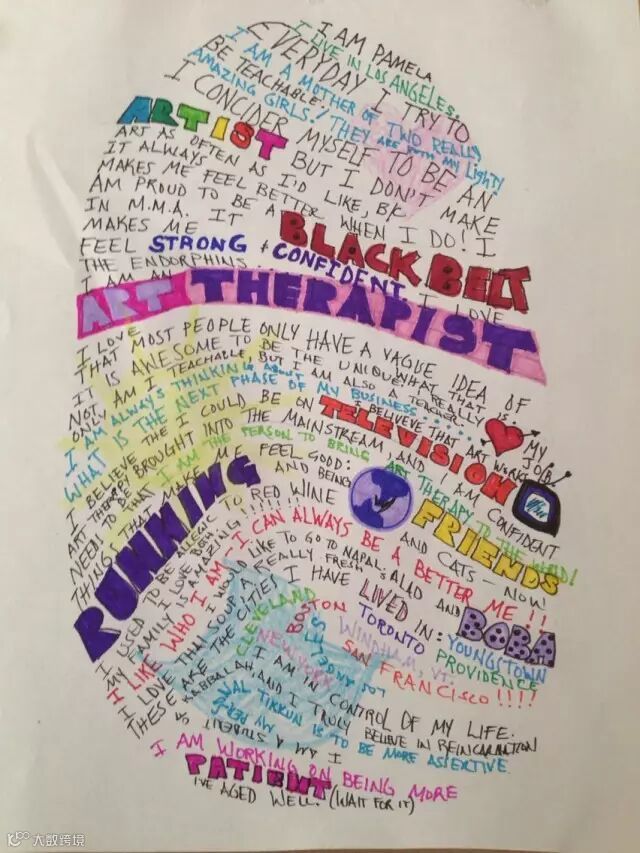 I AM PAMELA
I LIVE IN LOS ANGELES.
EVERYDAY I TRY TO
BE TEACHABLE!
I AM A MOTHER OF TWO REALLY
AMAZING GIRLS! THEY ARE BOTH MY LIGHT!
I CONCIDER MYSELF TO BE AN
ARTIST BUT I DON'T MAKE
ART AS OFTEN AS I'D LIKE, B/C
IT ALWAYS
MAKES ME FEEL BETTER WHEN I DO! I
AM PROUD TO BE A BLACK BELT
IN M.M.A. IT
MAKES ME
FEEL STRONG & CONFIDENT. I LOVE
THE ENDORPHINS
I AM AN
ART THERAPIST
I LOVE
THAT MOST PEOPLE ONLY HAVE A VAGUE IDEA OF
WHAT THAT REALLY IS
IT IS AWESOME TO BE THE UNIQUE
NOT ONLY AM I TEACHABLE, BUT I AM ALSO A TEACHER
I AM ALWAYS THINKING ABOUT
WHAT IS THE NEXT PHASE OF MY BUSINESS.....
I BELIEVE THAT ART WORKS
MY JOB
I BELIEVE THE I COULD BE ON TELEVISION
ART THERAPY
NEED TO BE BROUGHT INTO THE MAINSTREAM, AND I AM CONFIDENT
THAT I AM THE PERSON TO BRING ART THERAPY TO THE WORLD!
THINGS THAT MAKE ME FEEL GOOD:
RUNNING
FRIENDS
AND BEING
AND CATS - NOW!
I USED TO BE ALLERGIC TO RED WINE
I LOVE BOTH!
MY FAMILY IS AMAZING!!!!!!!!
I LIKE WHO I AM - I CAN ALWAYS BE A BETTER ME!!
I WOULD LIKE TO GO TO NAPA
I LOVE THAT
A REALLY FRESH SALAD AND BOBA
THESE ARE THE CITIES I HAVE LIVED IN: YOUNGSTOWN
CLEVELAND
BOSTON
TORONTO
PROVIDENCE
WINDHAM, VT.
NEW YORK
LOS ANGELES
SAN FRANCISCO!!!!
I AM IN CONTROL OF MY LIFE.
KABBALAH, AND I TRULY BELIEVE IN REINCARNATION
I AM A STUDENT OF
MY PERSONAL TIKKUN IS TO BE MORE ASSERTIVE.
I AM WORKING ON BEING MORE
PATIENT
I'VE AGED WELL. (WAIT FOR IT)
大数跨境